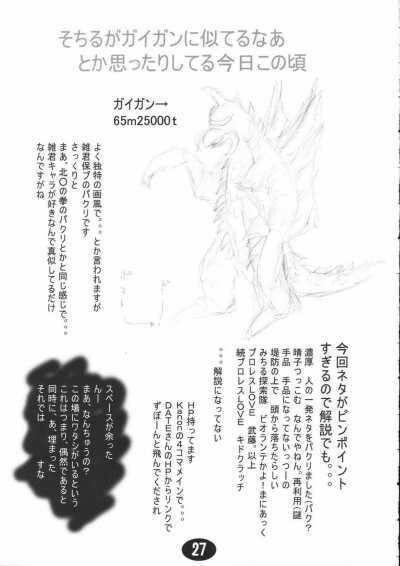 そちるがガイガンに似てるなあ
とか思ったりしてる今日この頃
ガイガン→
65m25000t
よく独特の画風で。。。とか言われますが
雑君保プのパクリです
さっくりと
まあ、北〇の拳のパクリとかと同じ感じで。。。
雑君キャラが好きなんで真似してるだけ
なんですがね
今回ネタがピンポイント
すぎるので解説でも。。。
濃厚 人の一発ネタをパクリました(パク?
晴子つっこむ なんでやねん。再利用(謎
手品 手品になってないっつーの
堤防の上で 頭から落ちたらしい
みちる探索隊 ビオランテかよ!まにあっく
プロレスLOVE 武藤。以上
続プロレスLOVE キドクラッチ
。。。解説になってない
HP持ってます
Kanonの4コマメインで。。。
DATEさんのHPからリンクで
ずぼーんと飛んでくだされ
スペースが余った
んー
まあ、なんちゅうの?
この場にワタシがいるという
これはつまり、偶然であると
同時に、あ、埋まった
それでは すな
27